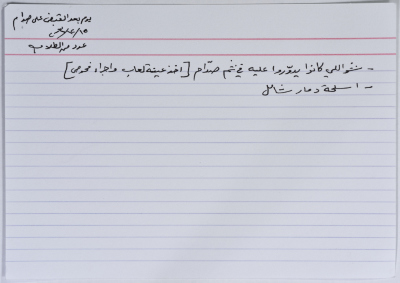 يوم بعد القبض على صدام
عدد من الطلاب
- شو اللي كانوا يدوّروا عليه في تم صدّام [اخذ عينة لعاب واجراء فحوص]
- اسلحة دمار شامل